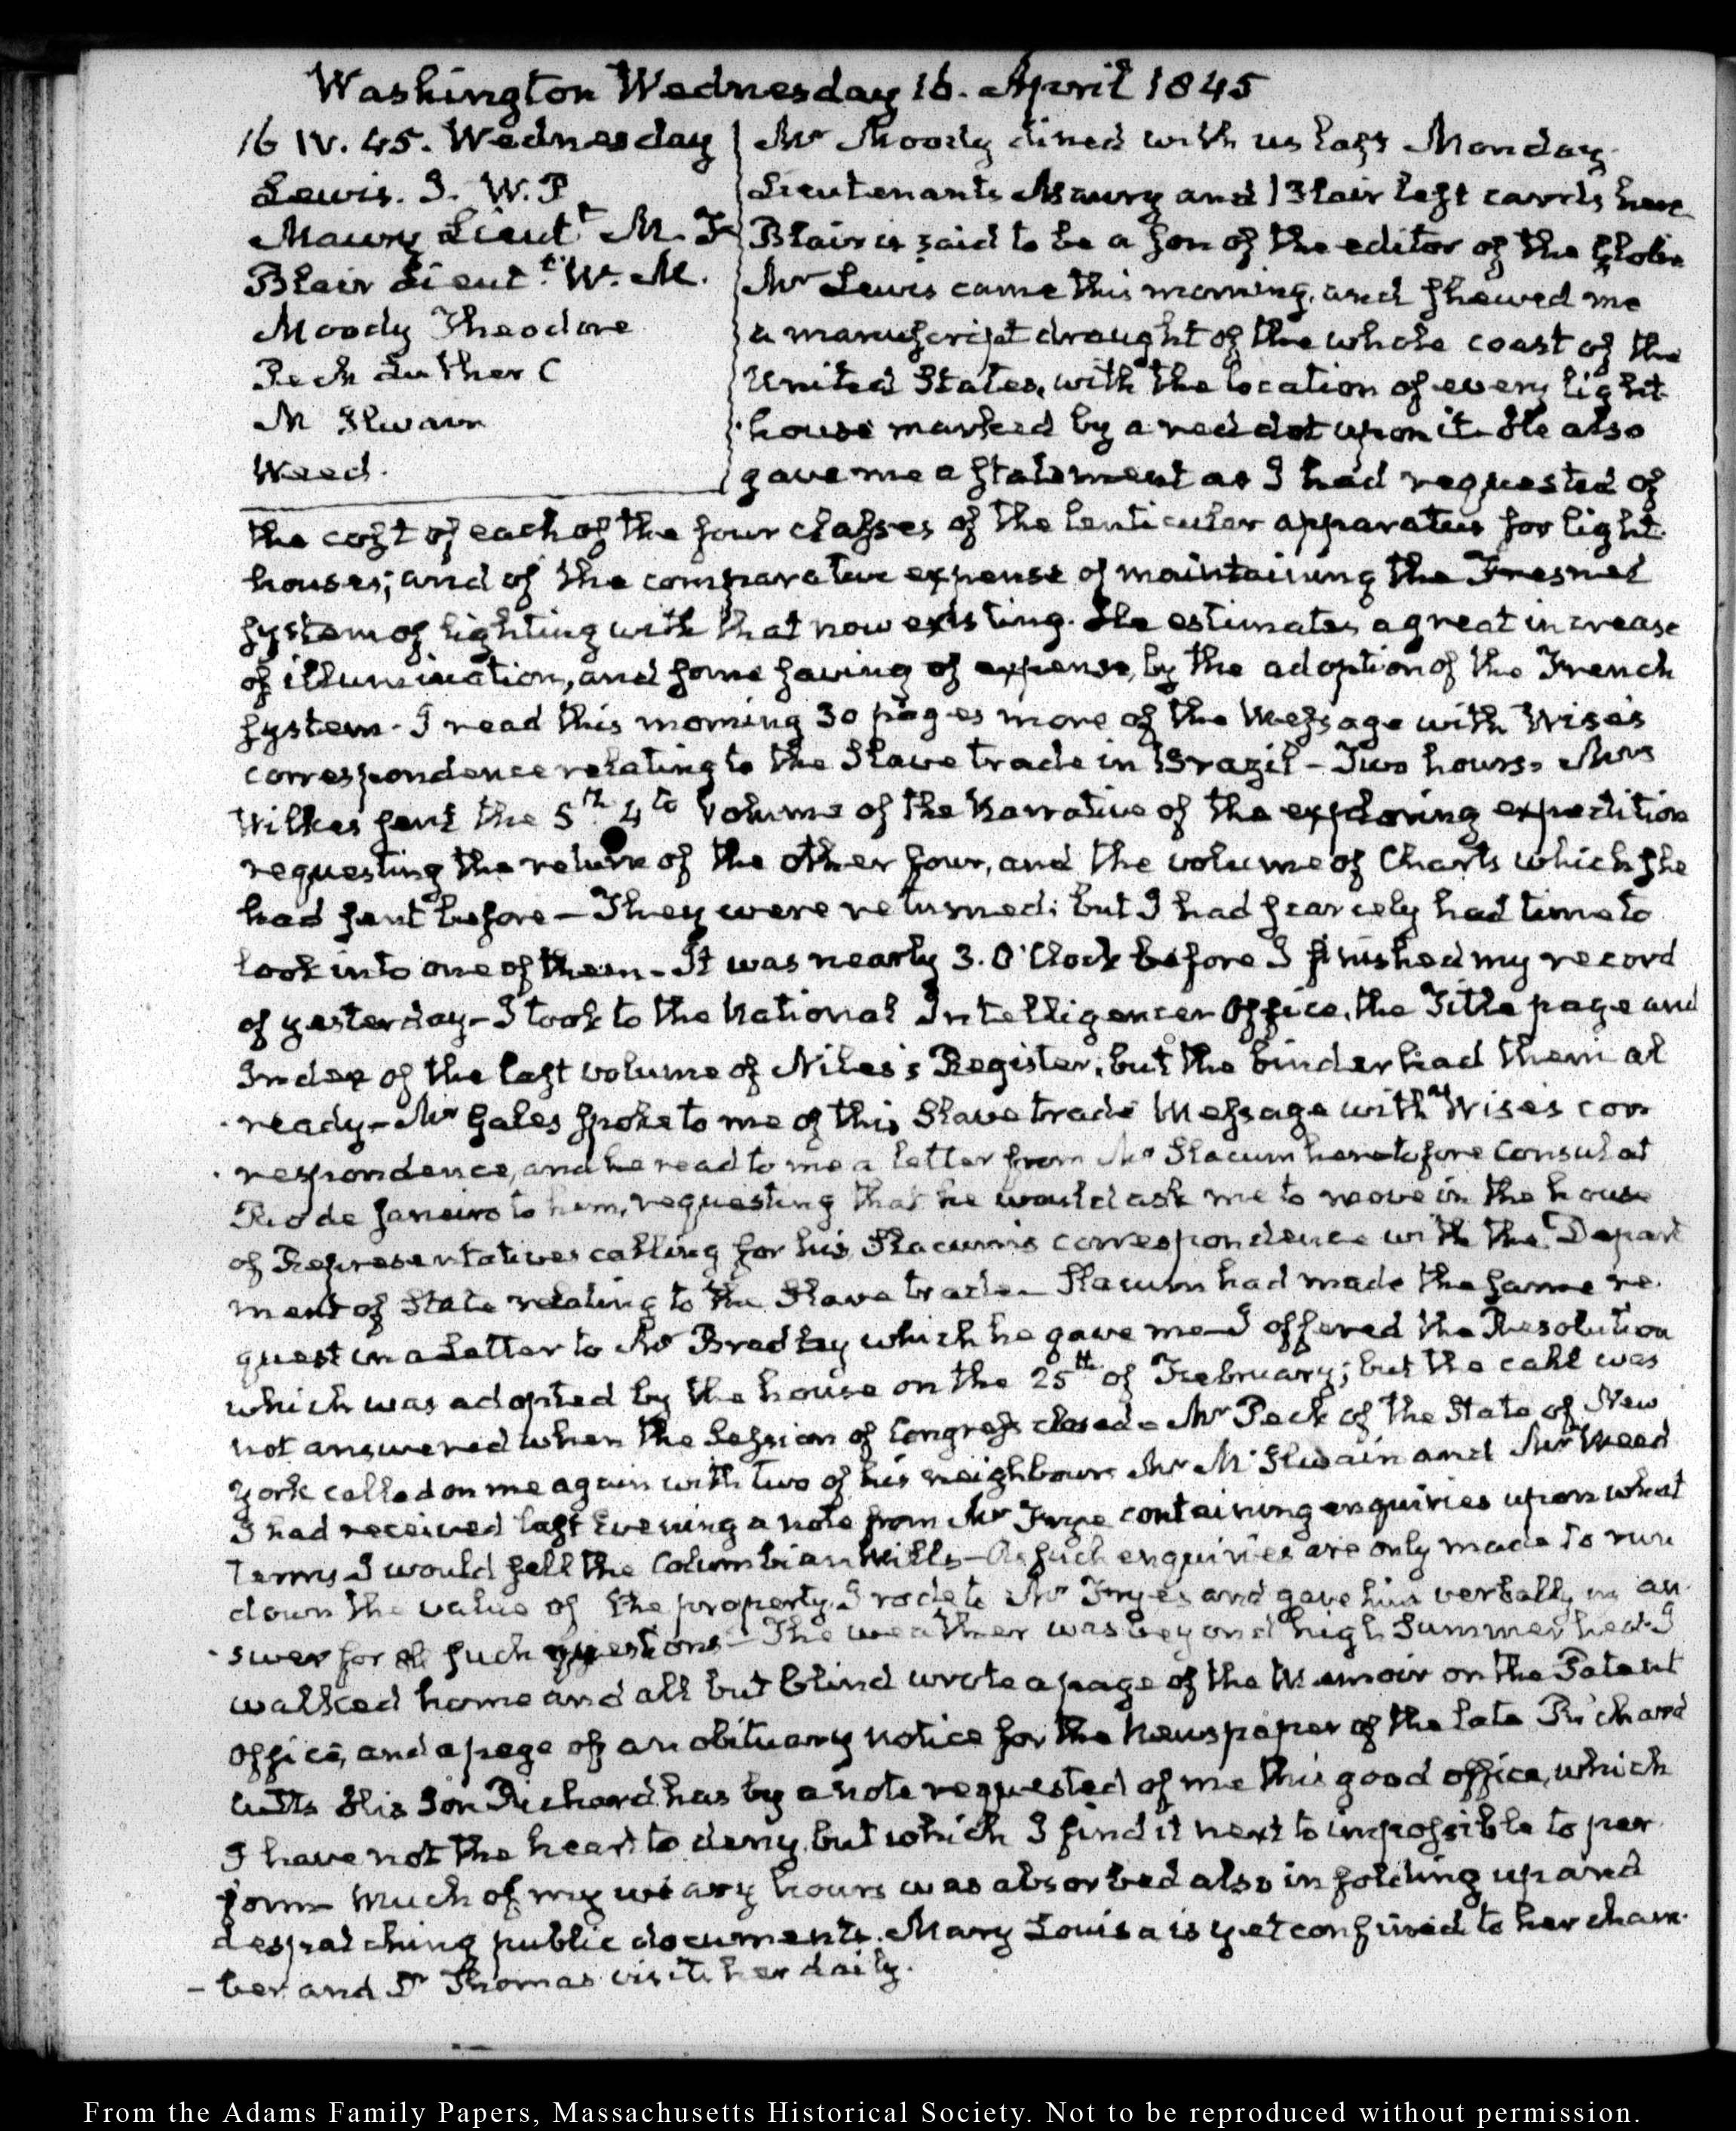 Washington Wednesday 16. April 1845
16 IV. 45. Wednesday
Lewis. I. W. P
Maury Lieut.t M. F
Blair Lieut.t W. M.
Moody Theodore
Peck Luther C
Mc Ilwain
Weed.
Mr Moody dined with us last Monday.
Lieutenants Maury and Blair left cards here
Blair is said to be a son of the editor of the Globe
Mr Lewis came this morning, and shewed me
a manuscript draught of the whole coast of the
United States, with the location of every light
house marked by a red dot upon it. He also
gave me a statement as I had requested of
the cost of each of the four classes of the lenticular apparatus for light
houses; and of the comparative expense of maintaining the Fresnel
system of lighting with that now existing. He estimates a great increase
of illumination, and some saving of expense, by the adoption of the French
system - I read this morning 30 pages more of the Message with Wise's
correspondence relating to the Slave trade in Brazil - Two hours. Mrs
Wilkes sent the 5th 4to Volume of the Narrative of the exploring expedition
requesting the return of the other four, and the volume of Charts which she
had sent before - They were returned; but I had scarcely had time to
look into one of them - It was nearly 3. O'Clock before I finished my record
of yesterday - I took to the National Intelligencer Office, the Title page and
Index of the last volume of Niles's Register; but the binder had them al
ready - Mr Gales spoke to me of this Slave trade Message with Wise's cor
respondence, and he read to me a letter from Mr Slacum heretofore Consul at
Rio de Janeiro to him, requesting that he would ask me to move in the house
of Representatives calling for his, Slacum's correspondence with the Depart
ment of State relating to the Slave trade - Slacum had made the same re
quest in a Letter to Mr Bradley which he gave me - I offered the Resolution
which was adopted by the house on the 25th of February; but the call was
not answered when the Session of Congress closed - Mr Peck of the State of New
York called on me again with two of his neighbours Mr Mc Ilwain and Mr Weed
I had received last Evening a note from Mr Frye containing enquiries upon what
terms I would sell the Columbian Mills - As such enquiries are only made to run
down the value of the property, I rode to Mr Frye's and gave him verbally an
swer for all such questions - The weather was beyond high Summer heat. I
walked home and all but blind wrote a page of the Memoir on the Patent
office, and a page of an obituary notice for the Newspaper of the late Richard
Cutts His Son Richard has by a note requested of me this good office, which
I have not the heart to deny, but which I find it next to impossible to per
form - Much of my weary hours was absorbed also in folding up and
despatching public documents. Mary Louisa is yet confined to her cham
- ber and Dr Thomas visits her daily.
From the Adams Family Papers, Massachusetts Historical Society. Not to be reproduced without permission.